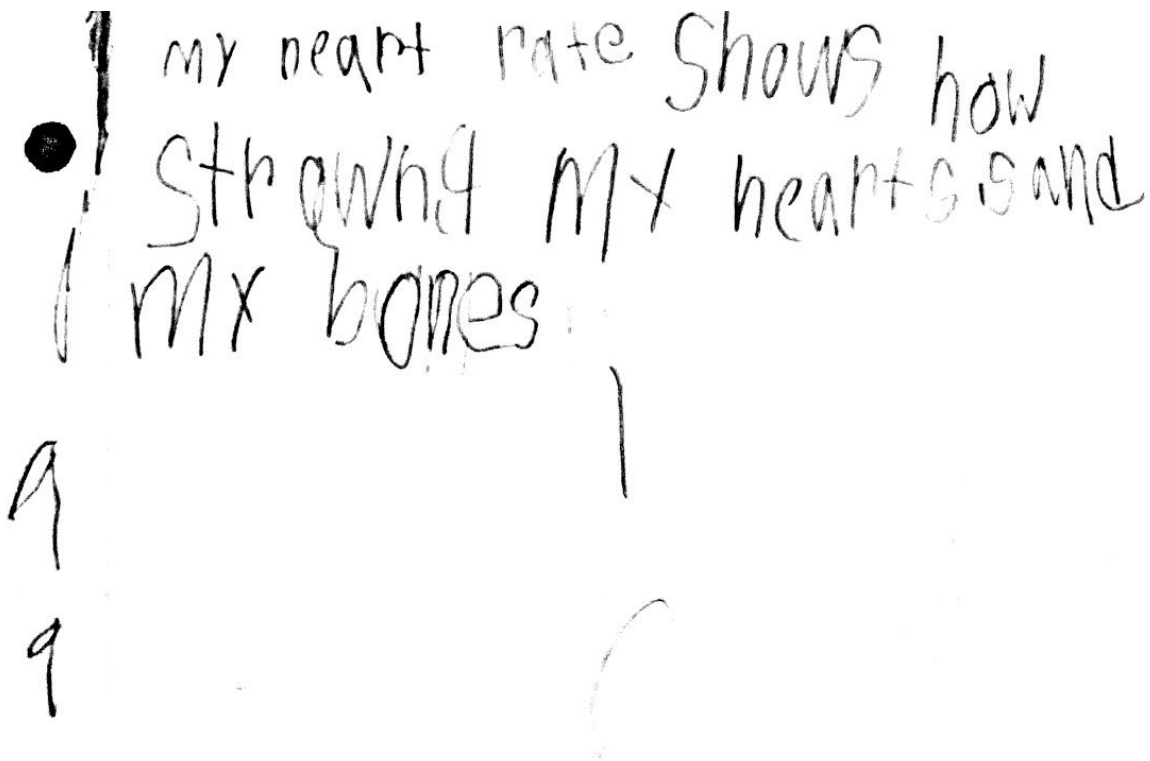 my heart rate shows how
strawng my hearts is and
my bones
9
9